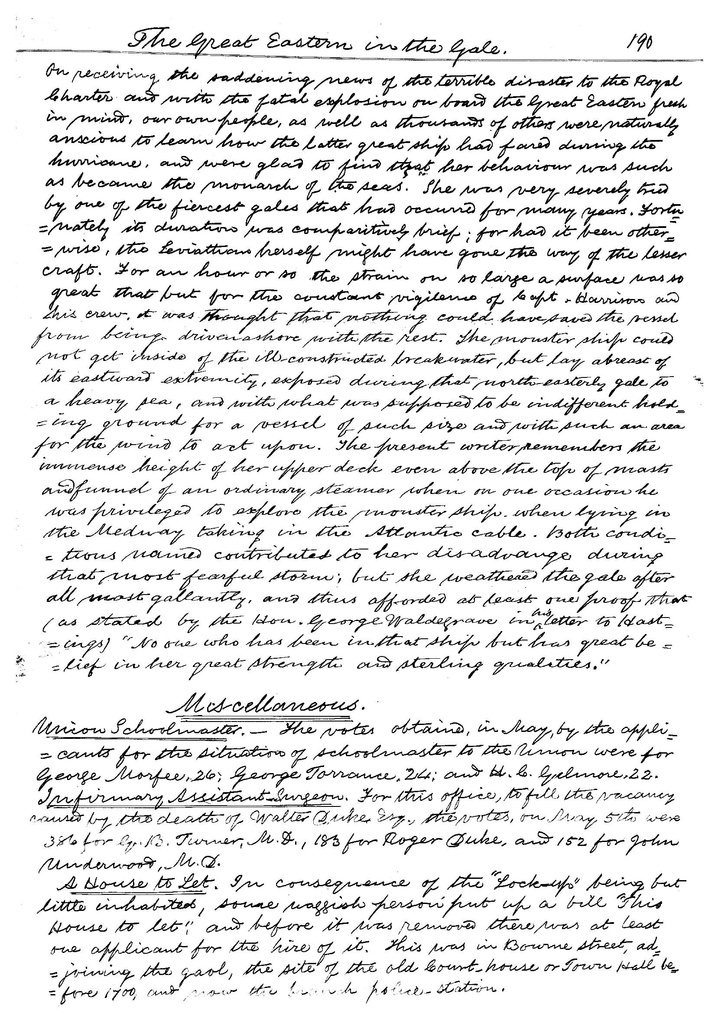 The Great Eastern in the Gale. 190
On receiving the saddening news of the terrible disaster to the Royal
Charter and with the fatal explosion on board the Great Eastern fresh
in mind, our own people, as well as thousands of others were naturally
anxious to learn how the latter great ship had fared during the
hurricane, and were glad to find that her behaviour was such
as became the monarch of the seas. She was very severely tried
by one of the fiercest gales that had occurred for many years. Fortu
=nately its duration was comparitively brief; for had it been other=
=wise, the Leviathan herself might have gone the way of the lesser
craft. For an hour or so the strain on so large a surface was so
great that but for the constant vigilence of Capt. Harrison and
his crew, it was thought that nothing could have save the vessel
from being driven ashore with the rest. The monster ship could
not get inside of the ill-constructed breakwater, but lay abreast of
its eastward extremity, exposed during that north-easterly gale to
a heavy sea, and with what was supposed to be indifferent hold=
=ing ground for a vessel of such size and with such an area
for the wind to act upon. The present writer remembers the
immense height of her upper deck even above the top of masts
and funnel of an ordinary steamer when on one occasion he
was privileged to explore the monster ship when lying in
the Medway taking in the Atlantic cable. Both condi=
=tions named contributed to her disadvange during
that most fearful storm; but she weathered the gale after
all most gallantly, and thus afforded at least one proof that
(as stated by the Hon. George Waldegrave in his letter to Hast=
=ings) "No one who has been in that ship but has great be=
=lief in her great strength and sterling qualities."
Miscellaneous.
Union Schoolmaster. — The votes obtained, in May, by the appli=
=cants for the situation of schoolmaster to the Union were for
George Morfee, 26; George Torrance, 24; and H. C. Gelmore, 22.
Infirmary Assistant-Surgeon. For this office, to fill the vacancy
caused by the death of Walter Duke Esq., the votes, on May 5th were
386 for G. B. Turner, M.D., 183 for Roger Duke, and 152 for John
Underwood, M.D.
A House to Let. In consequence of the "Lock-up" being but
little inhabited, some waggish person put up a bill "This
House to let", and before it was removed there was at least
one applicant for the hire of it. This was in Bourne street, ad=
=joining the gaol, the site of the old Court-house or Town Hall be=
=fore 1700, and now the branch police-station.